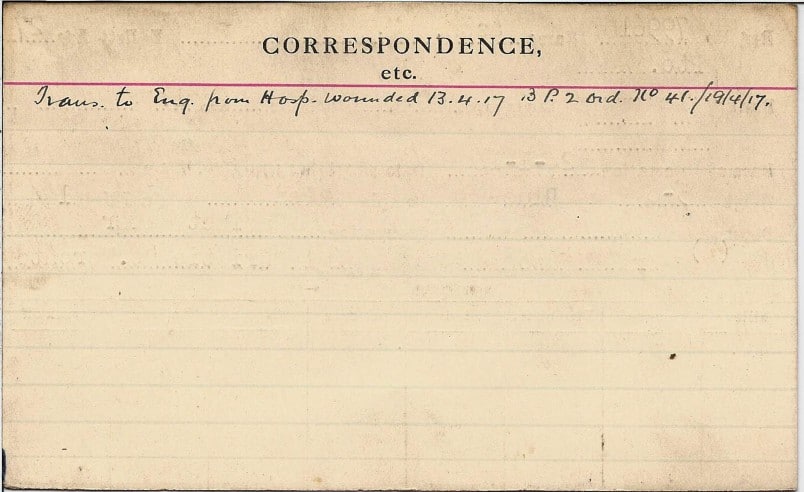 CORRESPONDENCE,
etc.
Trans. to Eng. from Hosp. wounded 13.4.17 B P. 2 Ord. No 41./19/4/17.